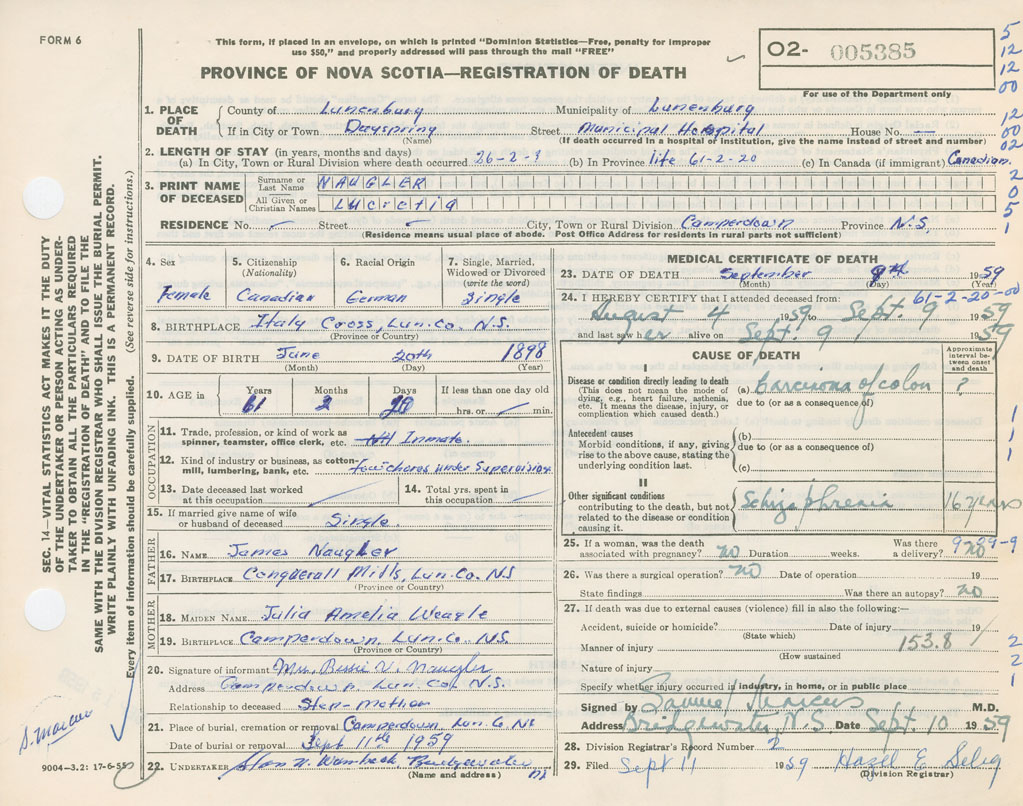 FORM 6
This form, if placed in an envelope, on which is printed "Dominion Statistics—Free, penalty for improper
use $50," and properly addressed will pass through the mail "FREE"
PROVINCE OF NOVA SCOTIA—REGISTRATION OF DEATH
02- 005385
For use of the Department only
5
12
12
00
12
00
02
2
0
5
1
SEC. 14—VITAL STATISTICS ACT MAKES IT THE DUTY
OF THE UNDERTAKER OR PERSON ACTING AS UNDER-
TAKER TO OBTAIN ALL THE PARTICULARS REQUIRED
IN THE "REGISTRATION OF DEATH" AND TO FILE THE
SAME WITH THE DIVISION REGISTRAR WHO SHALL ISSUE THE BURIAL PERMIT.
WRITE PLAINLY WITH UNFADING INK. THIS IS A PERMANENT RECORD.
Every item of information should be carefully supplied. (See reverse side for instructions.)
1. PLACE OF DEATH County of Lunenburg Municipality of Lunenburg
If in City or Town Dayspring Street Municipal Hospital House No. —
(Name) (If death occurred in a hospital or institution, give the name instead of street and number)
2. LENGTH OF STAY (in years, months and days)
(a) In City, Town or Rural Division where death occurred 26-2-9 (b) In Province life 61-2-20 (c) In Canada (if immigrant) Canadian.
3. PRINT NAME OF DECEASED
Surname or Last Name NAUGLER
All Given or Christian Names Lucretia
RESIDENCE No. Street City, Town or Rural Division Camperdown Province N.S.
(Residence means usual place of abode. Post Office Address for residents in rural parts not sufficient)
4. Sex Female
5. Citizenship (Nationality) Canadian
6. Racial Origin German
7. Single, Married, Widowed or Divorced (write the word) Single
8. BIRTHPLACE Italy Cross, Lun. Co. N.S.
(Province or Country)
9. DATE OF BIRTH June 20th 1898
(Month) (Day) (Year)
10. AGE in Years 61 Months 2 Days 20 If less than one day old
hrs. or min.
OCCUPATION
11. Trade, profession, or kind of work as
spinner, teamster, office clerk, etc. NH Inmate.
12. Kind of industry or business, as cotton-
mill, lumbering, bank, etc. few chores under Supervision.
13. Date deceased last worked
at this occupation
14. Total yrs. spent in
this occupation
15. If married give name of wife
or husband of deceased Single.
FATHER
16. NAME James Naugler
17. BIRTHPLACE Conquerall Mills, Lun. Co. NS
(Province or Country)
MOTHER
18. MAIDEN NAME Julia Amelia Weagle
19. BIRTHPLACE Camperdown, Lun. Co. NS.
(Province or Country)
20. Signature of informant Mrs. Bessie V. Naugler
Address Camperdown, Lun. Co. N.S.
Relationship to deceased Step-Mother
21. Place of burial, cremation or removal Camperdown, Lun. Co. NS
Date of burial or removal Sept 11th 1959
22. UNDERTAKER Bridgewater NS
(Name and address)
9004-3.2: 17-6-55
S. Marcus
MEDICAL CERTIFICATE OF DEATH
23. DATE OF DEATH September 9th 1959
(Month) (Day) (Year)
61-2-20-00
24. I HEREBY CERTIFY that I attended deceased from:
August 4 1959 to Sept. 9 1959
and last saw her alive on Sept. 9 1959
CAUSE OF DEATH
Approximate interval between onset and death
I
Disease or condition directly leading to death
(This does not mean the mode of
dying, e.g., heart failure, asthenia,
etc. It means the disease, injury, or
complication which caused death.)
(a) Carcinoma of colon ?
due to (or as a consequence of)
Antecedent causes
Morbid conditions, if any, giving
rise to the above cause, stating the
underlying condition last.
(b)
due to (or as a consequence of)
(c)
II
Other significant conditions
contributing to the death, but not
related to the disease or condition
causing it.
Schizophrenia 16 years
1
1
1
25. If a woman, was the death
associated with pregnancy? no Duration weeks. Was there
a delivery? no
26. Was there a surgical operation? no Date of operation 19
State findings Was there an autopsy? no
27. If death was due to external causes (violence) fill in also the following:—
Accident, suicide or homicide? Date of injury 19
(State which)
Manner of injury 153.8
(How sustained)
Nature of injury
Specify whether injury occurred in industry, in home, or in public place
2
2
1
Signed by Samuel Marcus M.D.
Address Bridgewater, N.S. Date Sept. 10 1959
28. Division Registrar's Record Number 2
29. Filed Sept 11 1959 Hazel E Selig
(Division Registrar)